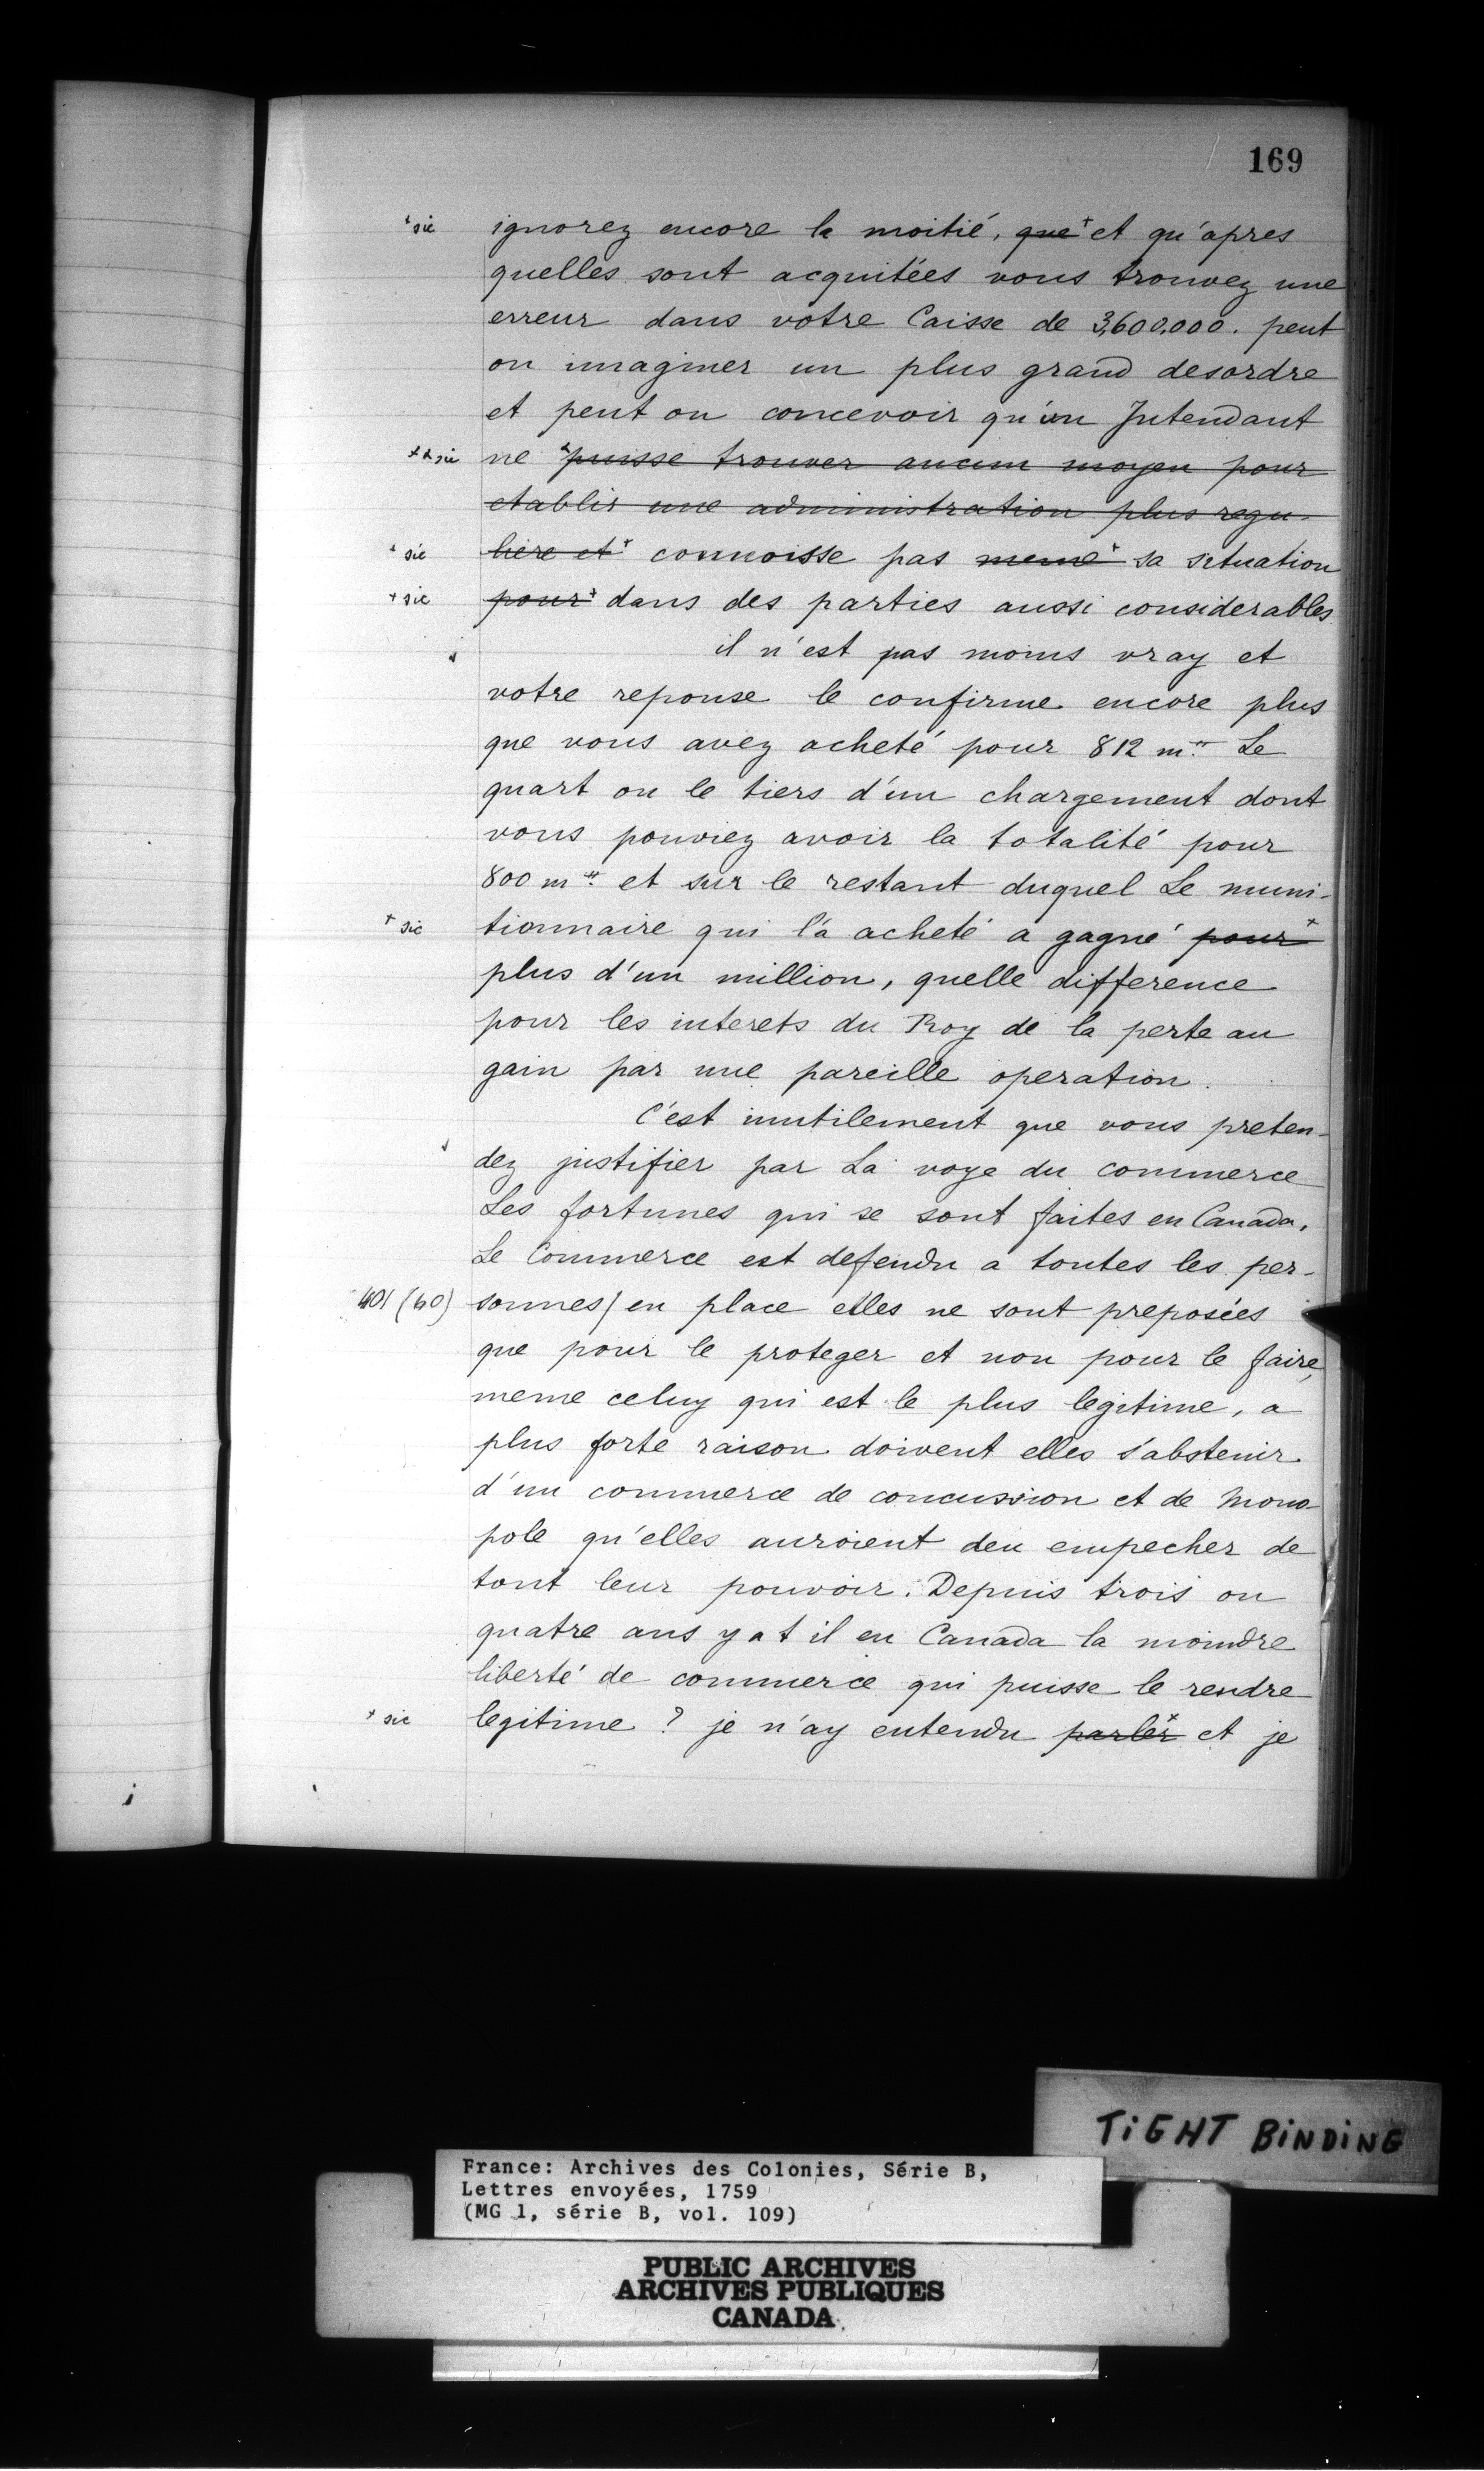 169
+sic ignorez encore la moitié, que+ et qu'apres
quelles sont acquitées vous trouvez une
erreur dans votre Caisse de 3,600,000. peut
on imaginer un plus grand desordre
et peut on concevoir qu'un Intendant
++sic ne +puisse trouver aucun moyen pour
etablir une administration plus regu-
+sic liere et+ connoisse pas meme+ sa situation
+sic pour+ dans des parties aussi considerables
il n'est pas moins vray et
votre reponse le confirme encore plus
que vous avez acheté pour 812 m.tt Le
quart ou le tiers d'un chargement dont
vous pouviez avoir la totalité pour
800 m.tt et sur le restant duquel Le muni-
+sic tionnaire qui l'a acheté a gagné pour+
plus d'un million, quelle difference
pour les interets du Roy de la perte au
gain par une pareille operation.
C'est inutilement que vous preten-
dez justifier par La voye du commerce
Les fortunes qui se sont faites en Canada.
Le Commerce est defendu a toutes les per-
401 (60) sonnes/ en place elles ne sont preposées
que pour le proteger et non pour le faire,
meme celuy qui est le plus legitime, a
plus forte raison doivent elles s'abstenir
d'un commerce de concussion et de Mono-
pole qu'elles auroient deu empecher de
tout leur pouvoir. Depuis trois ou
quatre ans y a t il en Canada la moindre
liberté de commerce qui puisse le rendre
+sic legitime ? je n'ay entendu parler+ et je
TiGHT BiNDiNG
France: Archives des Colonies, Série B,
Lettres envoyées, 1759
(MG 1, série B, vol. 109)
PUBLIC ARCHIVES
ARCHIVES PUBLIQUES
CANADA